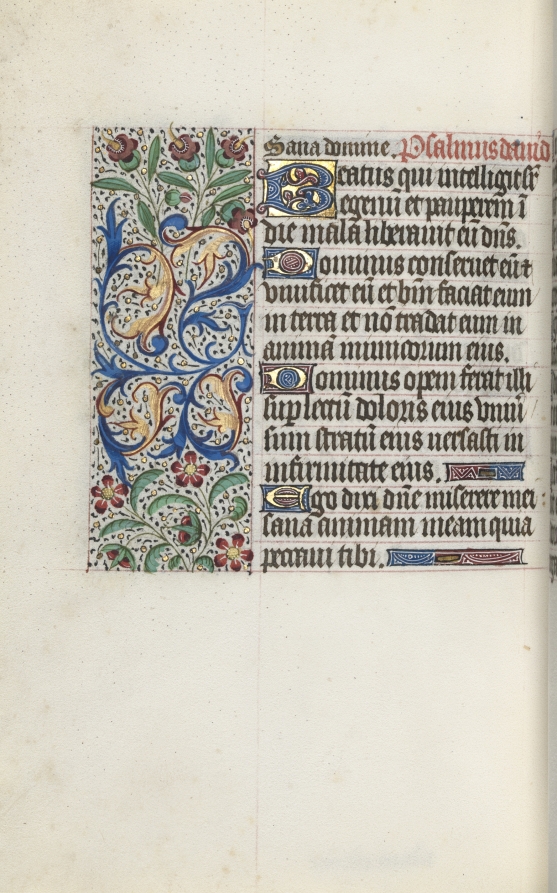 Sana domine. Psalmus dauid
Beatus qui intelligit sr̄
egenū et pauperem ī
die mala liberauit eū dn̄s.
Dominus conseruet eū ⁊
viuificet eū et bt̄m faciat eum
in terra et nō tradat eum in
animā inimicorum eius.
Dominus opem ferat illi
sup̱ lectū doloris eius vniū
sum stratū eius uersasti in
infirmitate eius.
Ego dixi dn̄e miserere mei
sana animam meam quia
peccaui tibi.